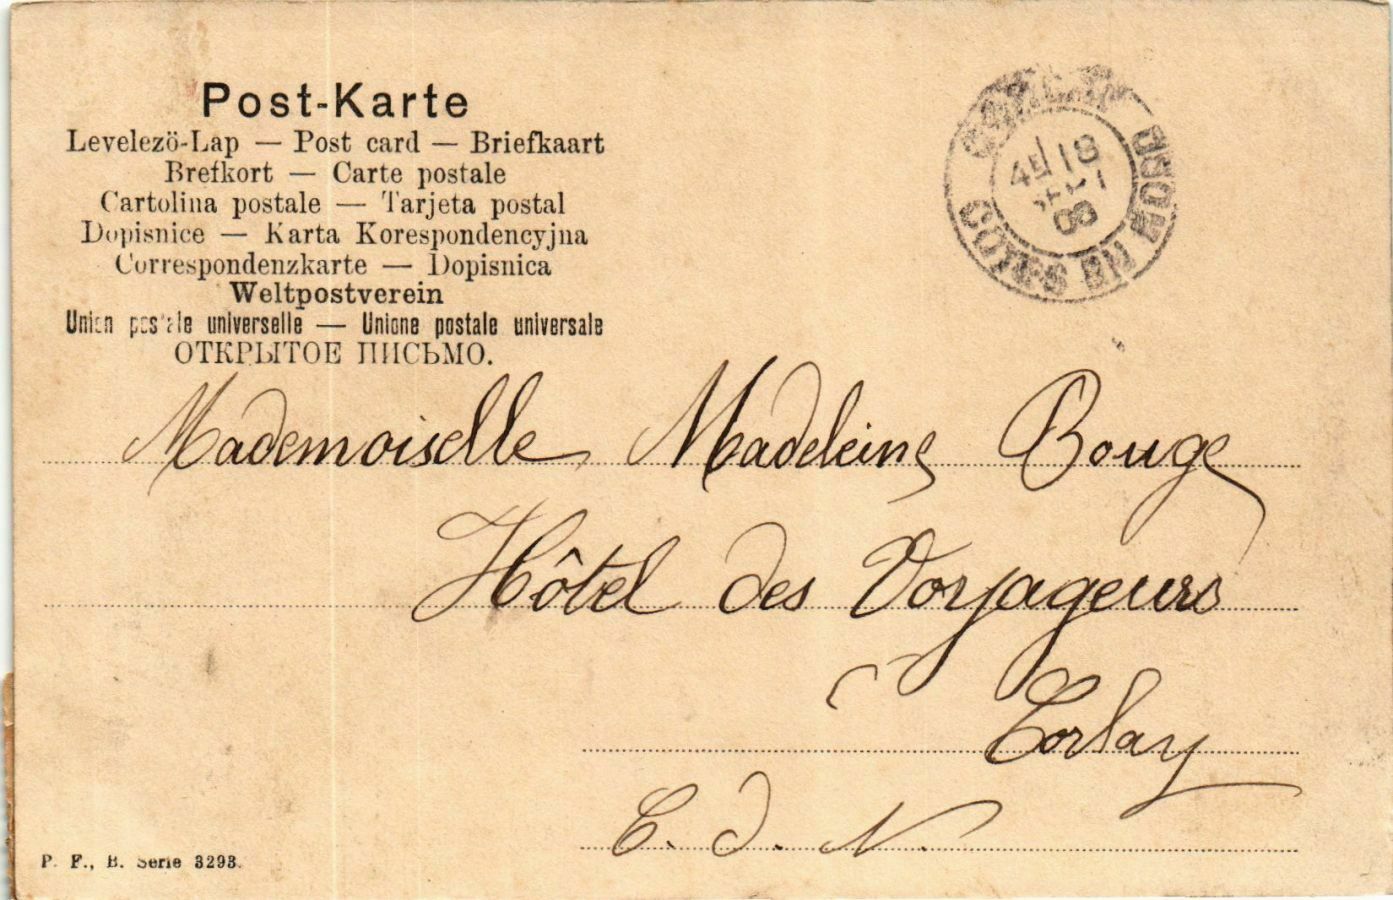 Post-Karte
Levelezö-Lap — Post card — Briefkaart
Brefkort — Carte postale
Cartolina postale — Tarjeta postal
Dopisnice — Karta Korespondencyjna
Correspondenzkarte — Dopisnica
Weltpostverein
Union postale universelle — Unione postale universale
ОТКРЫТОЕ ПИСЬМО.
CORLAY
COTES DU NORD
18
08
Mademoiselle Madeleine Bouge
Hôtel des Voyageurs
Corlay
C. d. N.
P. F., B. Serie 3293.